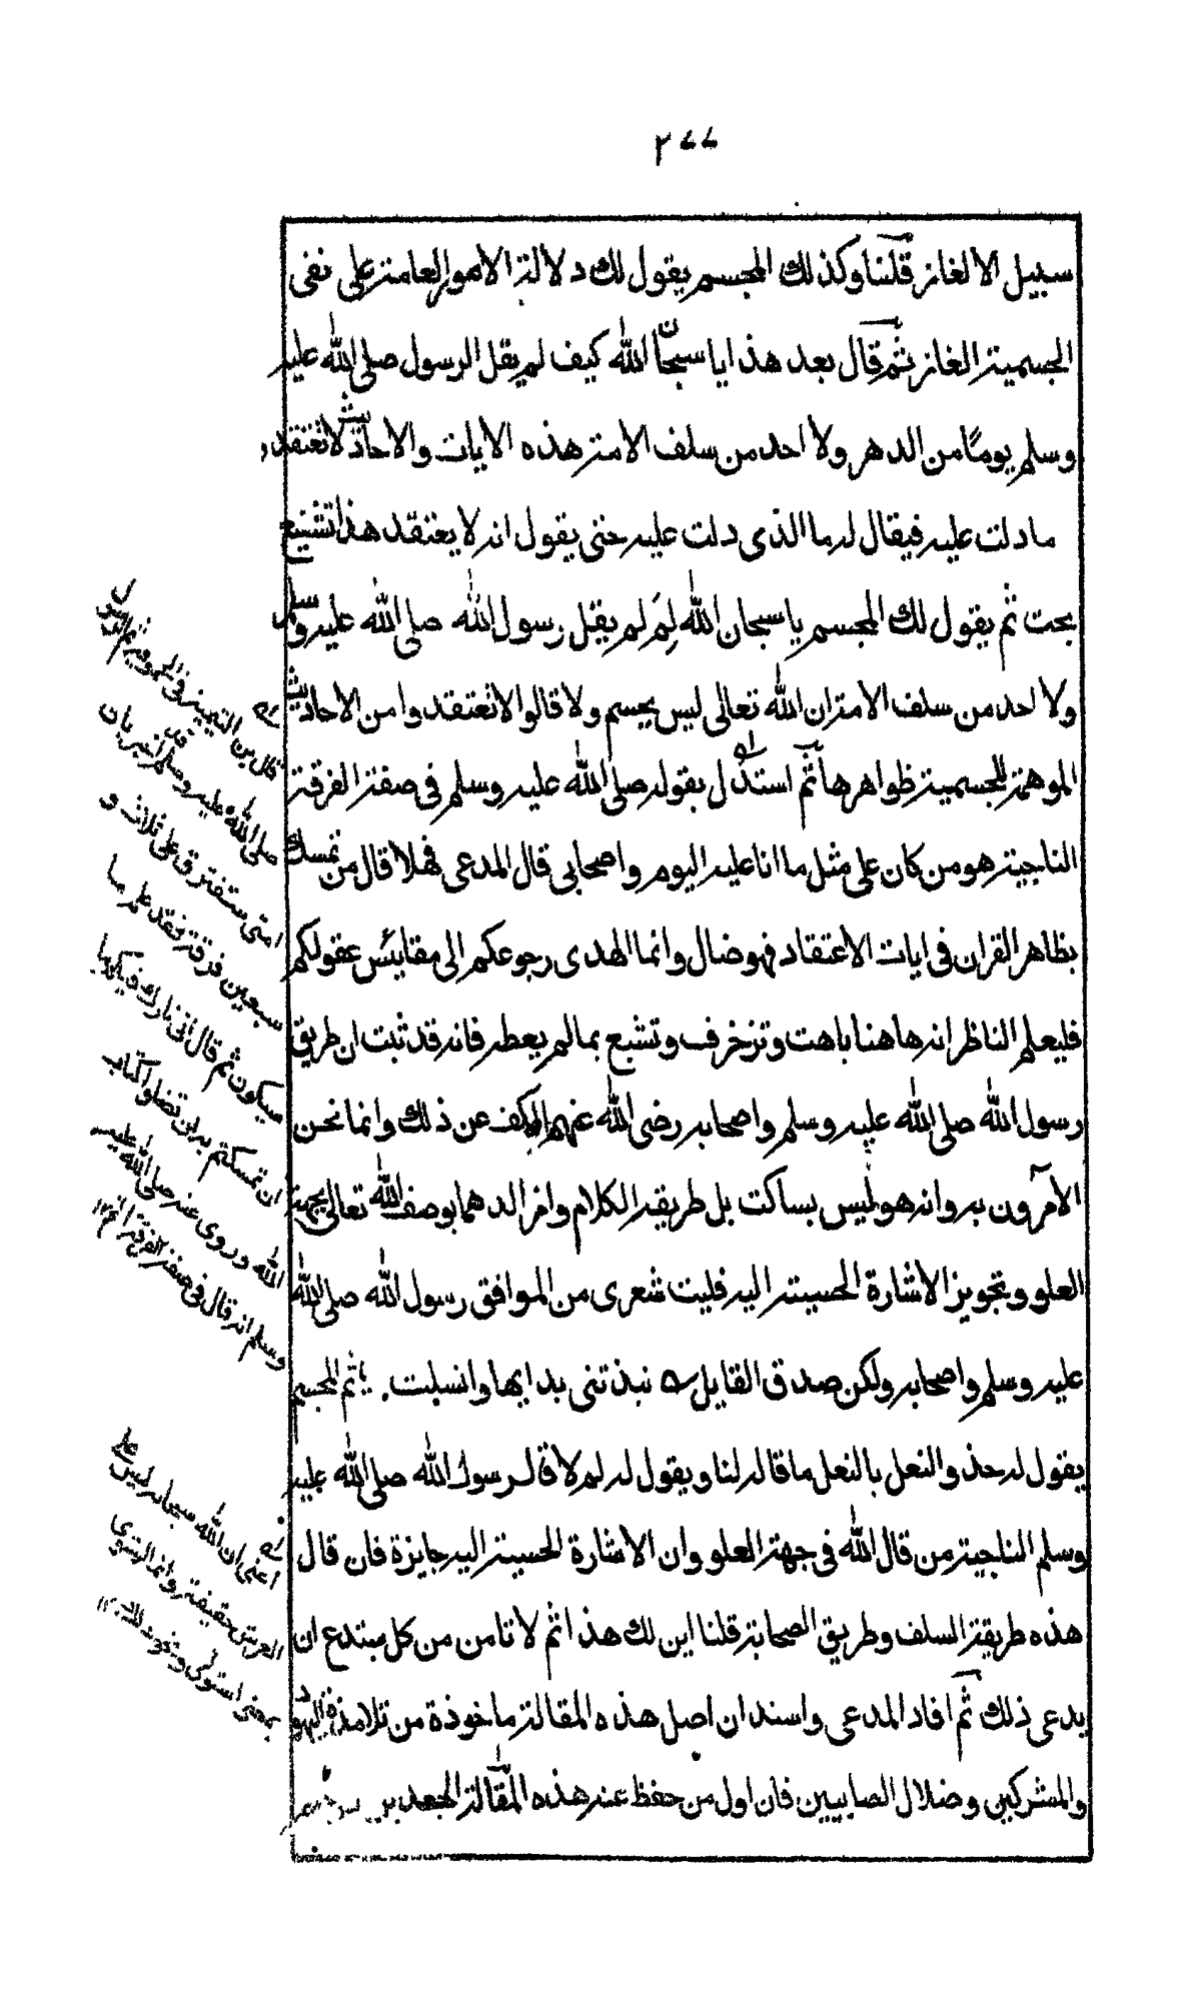 ٢٧٧
سبيل الالغاز قلنا وكذلك المجسم يقول لك دلالة الامور العامة على نفى
الجسمية الغاز ثم قال بعد هذا يا سبحان الله كيف لم يقل الرسول صلى الله عليه
وسلم يوما من الدهر ولا احد من سلف الامة هذه الايات والاحاديث لا تعتقدوا
ما دلت عليه فيقال له ما الذى دلت عليه حتى يقول انه لا يعتقد هذا تشنيع
بحت ثم يقول لك المجسم يا سبحان الله لِمَ لم يقل رسول الله صلى الله عليه وسلم
ولا احد من سلف الامة ان الله تعالى ليس بجسم ولا قالوا لا تعتقدوا من الاحاديث
الموهمة للجسمية ظواهرها ثم استدل بقوله صلى الله عليه وسلم فى صفة الفرقة
الناجية هو من كان على مثل ما انا عليه اليوم واصحابى قال المدعى فهلا قال من تمسك
بظاهر القران فى ايات الاعتقاد فهو ضال وانما الهدى رجوعكم الى مقاييس عقولكم
فليعلم الناظر انه هاهنا باهت وتزخرف وتشبع بما لم يعطه فانه قد ثبت ان طريق
رسول الله صلى الله عليه وسلم واصحابه رضى الله عنهم الكف عن ذلك وانما نحن
الآمرون به وانه هو ليس بساكت بل طريقه الكلام وامر الدهما بوصف الله تعالى بجهة
العلو وتجويز الاشارة الحسية اليه فليت شعرى من الموافق رسول الله صلى الله
عليه وسلم واصحابه ولكن صدق القايل ه نبذتنى بدايها وانسلت. ثم المجسم
يقول له حذو النعل بالنعل ما قاله لنا ويقول له لم لا قال رسول الله صلى الله عليه
وسلم الناجية من قال الله فى جهة العلو وان الاشارة الحسية اليه جايزة فان قال
هذه طريقة السلف وطريق الصحابة قلنا اين لك هذا ثم لا تامن من كل مبتدع ان
يدعى ذلك ثم افاد المدعى واسند ان اصل هذه المقالة ماخوذة من تلامذة اليهود
والمشركين وضلال الصابيين فان اول من حفظ عنه هذه المقالة الجعد بن
صلى الله عليه وسلم اخبر بان
امتى ستفترق على ثلاث و
سبعين فرقة فقد علم ما
سيكون ثم قال انى تارك فيكم ما
ان تمسكتم به لن تضلوا كتاب
الله وروى عنه صلى الله عليه
وسلم انه قال فى صفة الفرقة
اعنى ان الله سبحانه ليس على
العرش حقيقة وانما استوى
بمعنى استولى ونحو ذلك ١٢